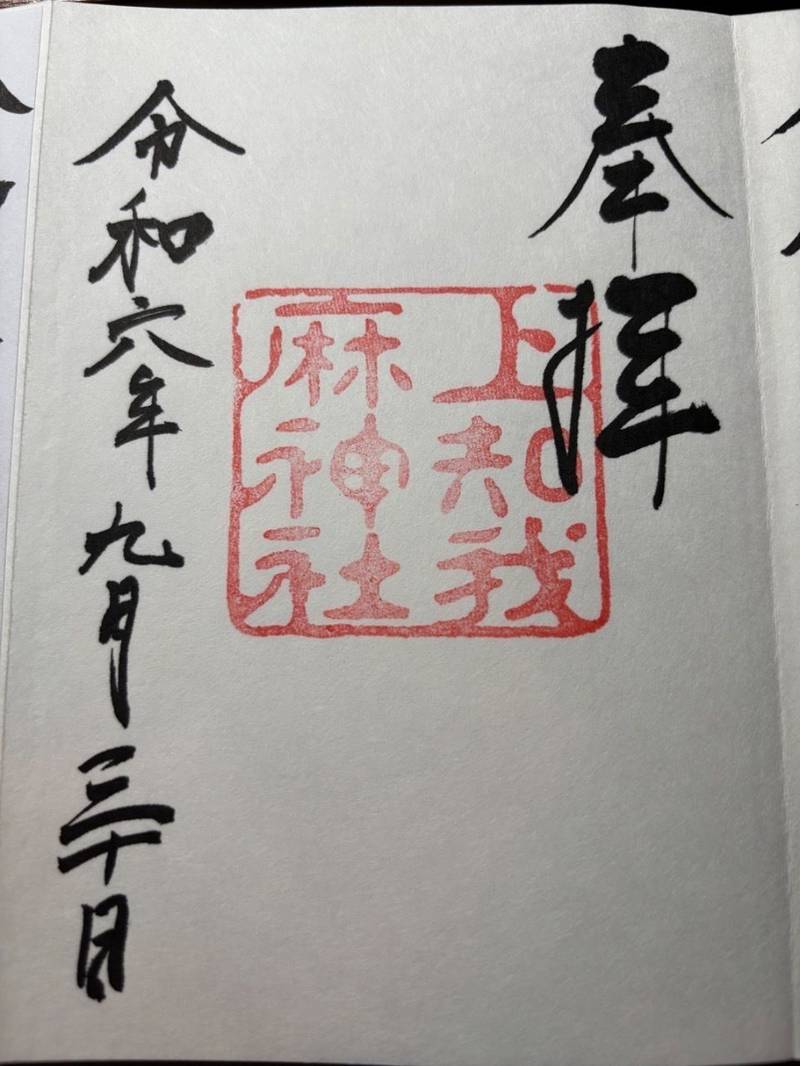 奉拝
上知我
麻神社
令和六年九月三十日